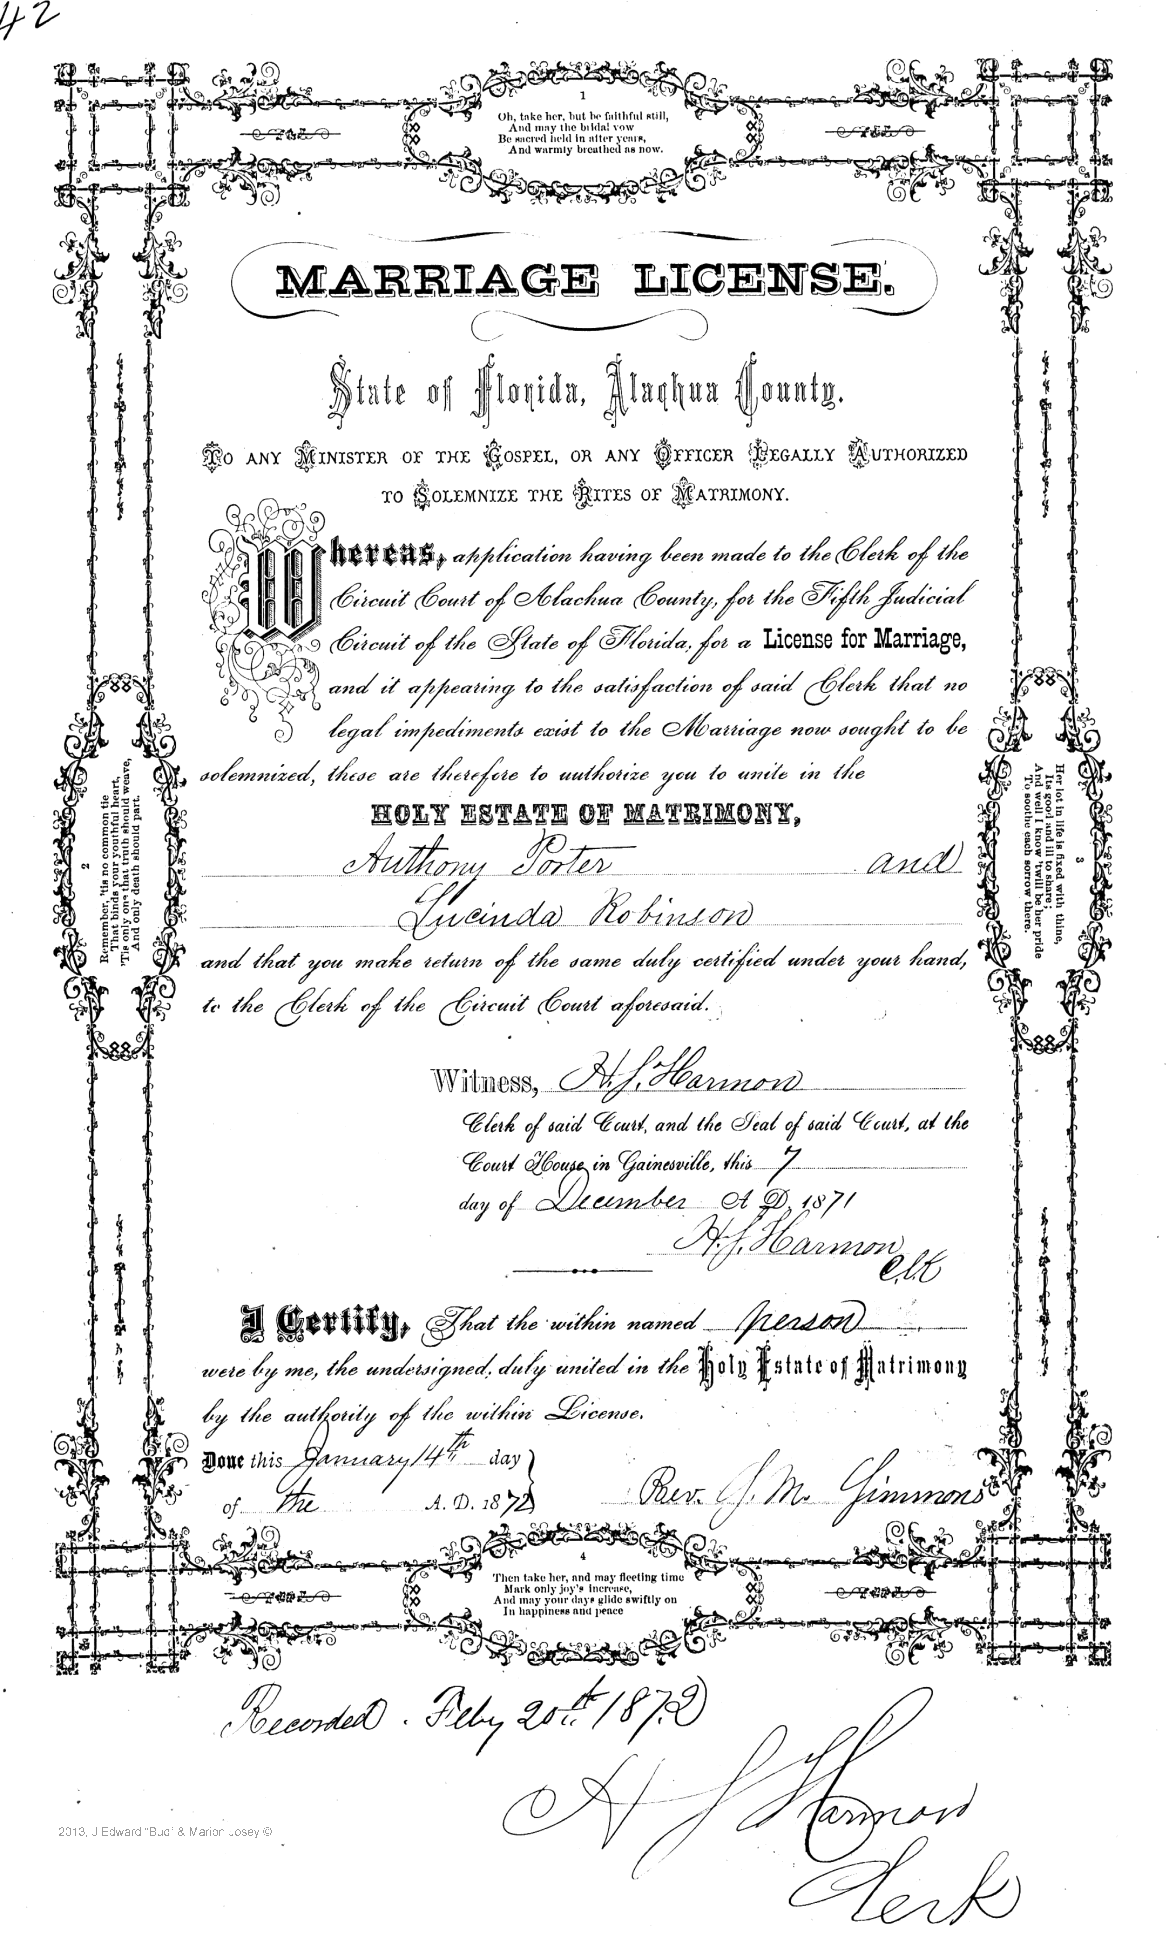 42
1
Oh, take her, but be faithful still,
And may the bridal vow
Be sacred held in after years,
And warmly breathed as now.
MARRIAGE LICENSE.
State of Florida, Alachua County.
TO ANY MINISTER OF THE GOSPEL, OR ANY OFFICER LEGALLY AUTHORIZED
TO SOLEMNIZE THE RITES OF MATRIMONY.
Whereas, application having been made to the Clerk of the
Circuit Court of Alachua County, for the Fifth Judicial
Circuit of the State of Florida, for a License for Marriage,
and it appearing to the satisfaction of said Clerk that no
legal impediments exist to the Marriage now sought to be
solemnized, these are therefore to authorize you to unite in the
HOLY ESTATE OF MATRIMONY,
Authony Porter and
Lucinda Robinson
and that you make return of the same duly certified under your hand,
to the Clerk of the Circuit Court aforesaid.
2
Remember, 'tis no common tie
That binds your youthful heart,
'Tis only one that truth should weave,
And only death should part.
3
Her lot in life is fixed with thine,
Its good and ill to share;
And well I know 'twill be her pride
To soothe each sorrow there.
Witness, H. S. Harmon
Clerk of said Court, and the Seal of said Court, at the
Court House in Gainesville, this 7
day of December A D. 1871
H. S. Harmon
Clk
I Certify, That the within named person
were by me, the undersigned, duly united in the Holy Estate of Matrimony
by the authority of the within License.
Done this January 14th day
of the A. D. 1872
Rev. J. M. Simmons
4
Then take her, and may fleeting time
Mark only joy's increase,
And may your days glide swiftly on
In happiness and peace
Recorded. Feby 20th 1872
H S Harmon
Clerk
2013, J Edward "Bud" & Marion Josey ©